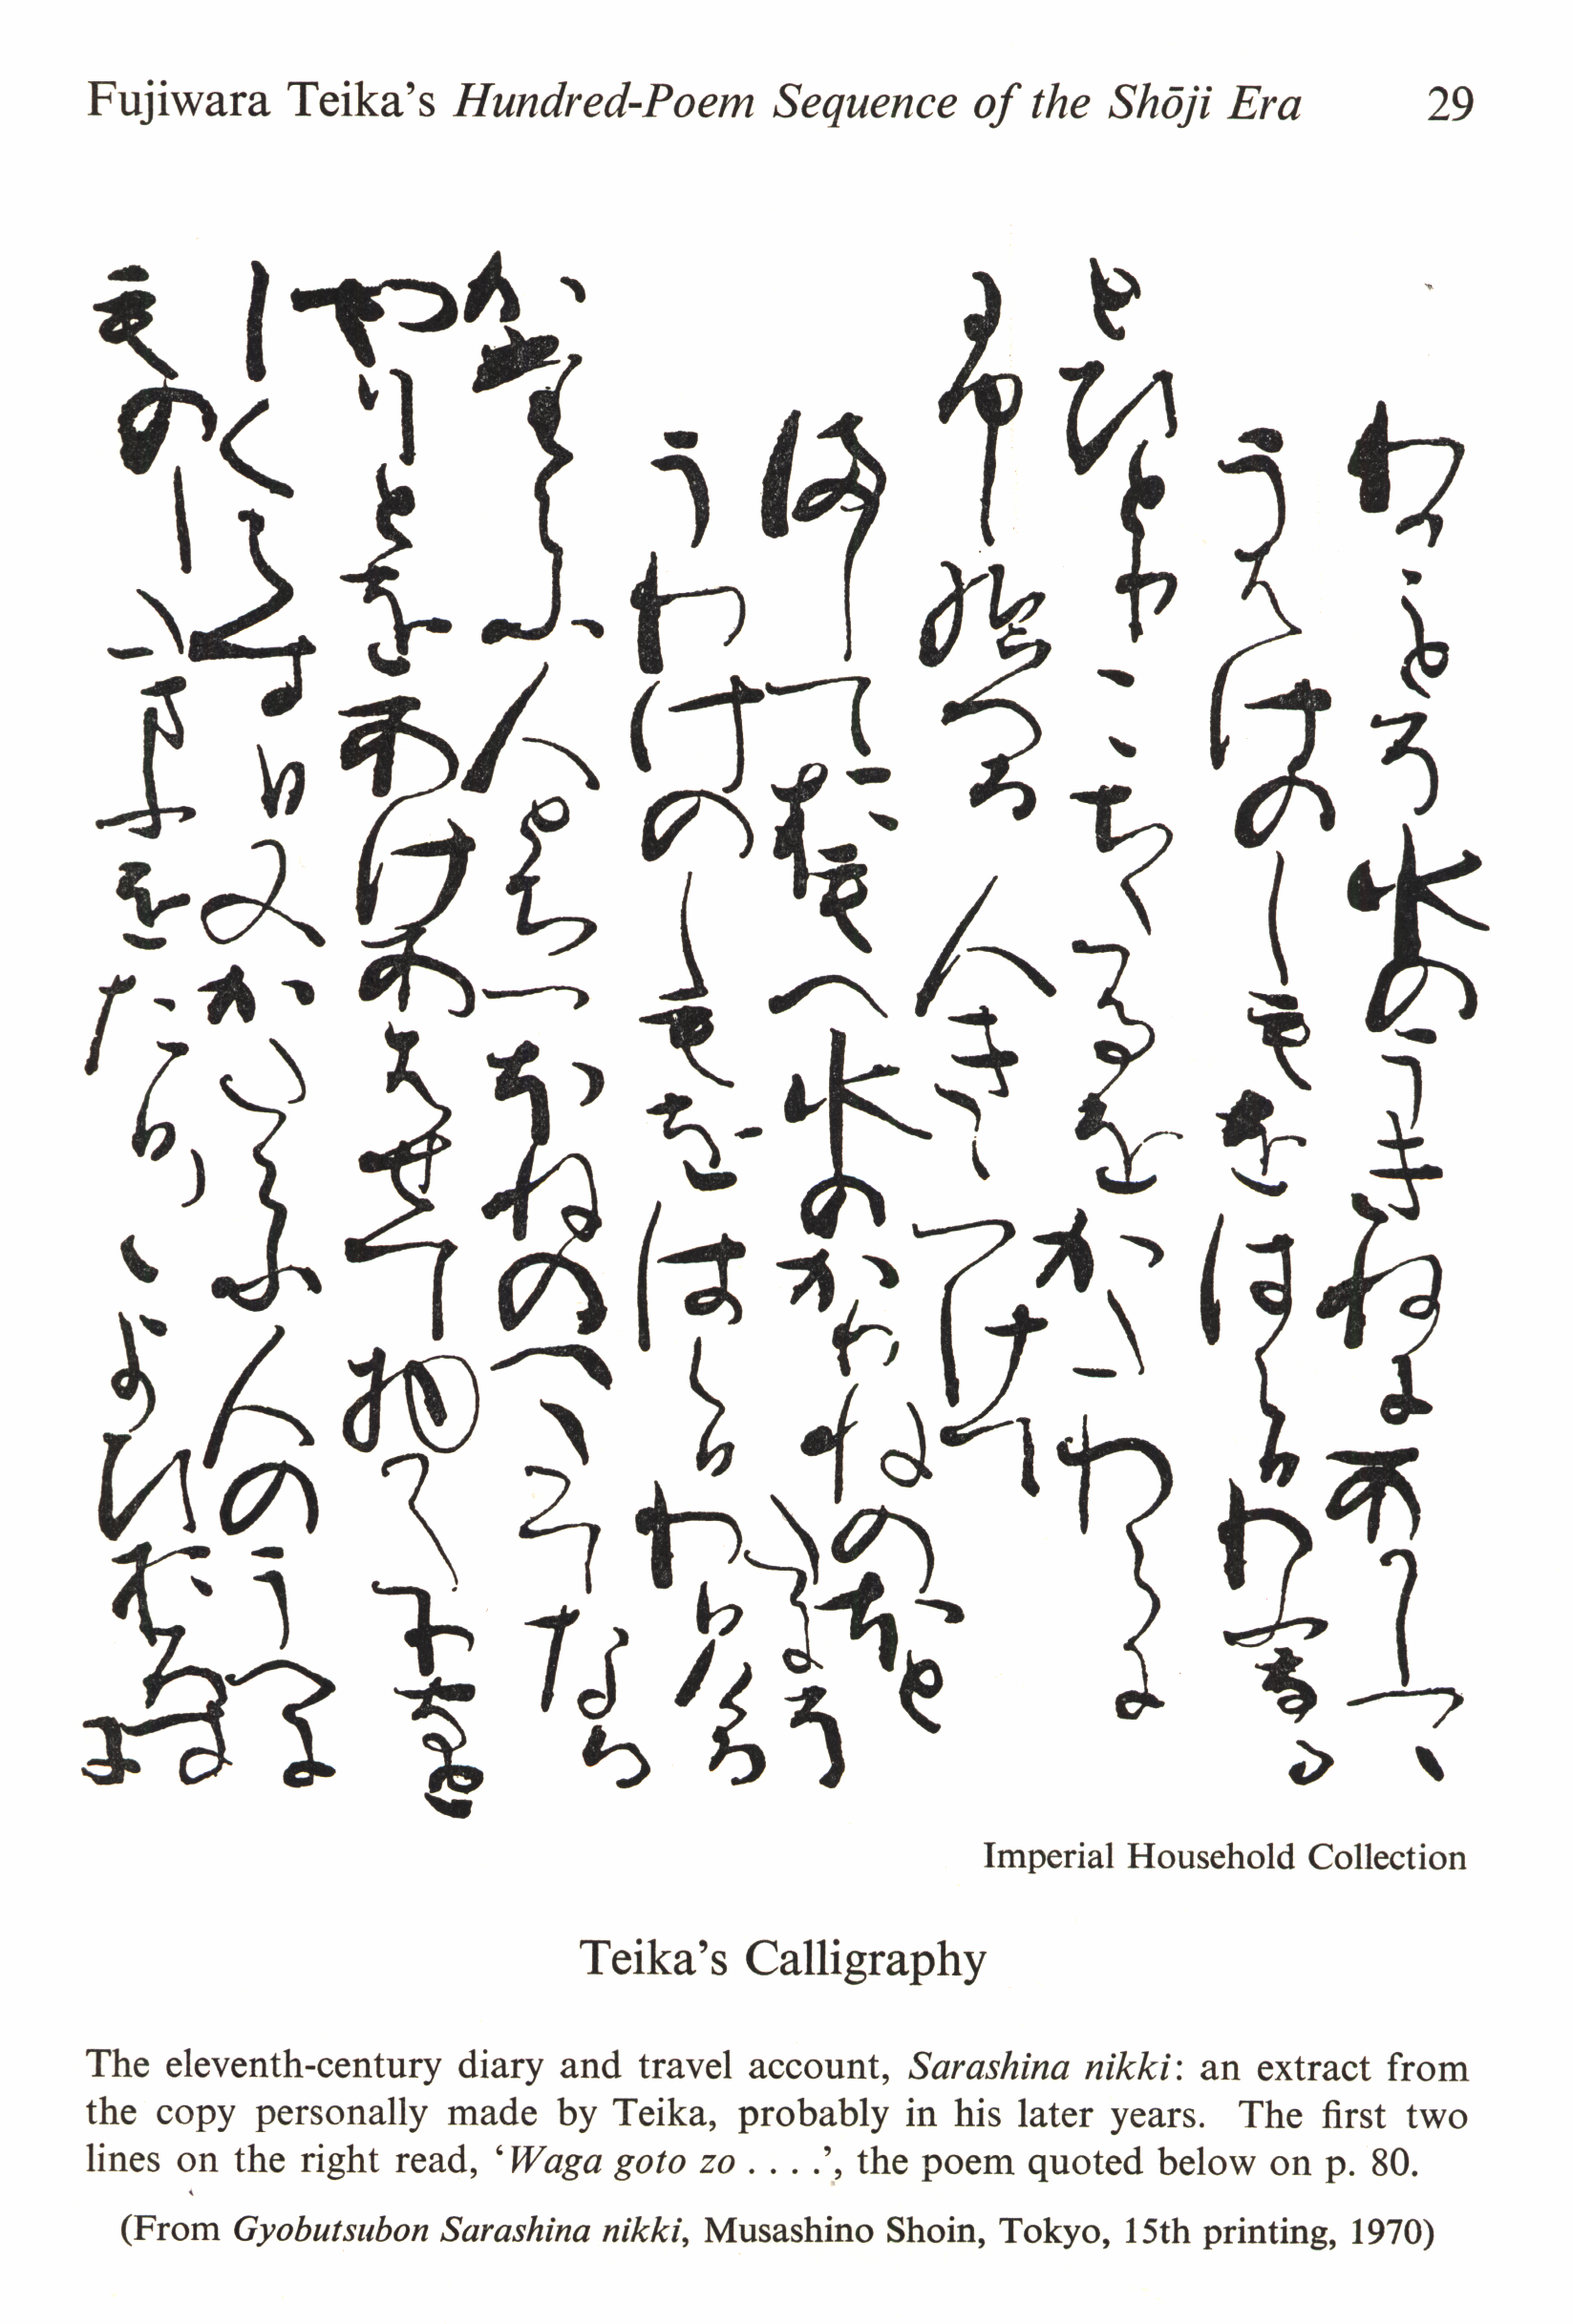 Fujiwara Teika's Hundred-Poem Sequence of the Shōji Era 29
わかことそ水のうきねにあかしつゝ
うはけのしもをはらひわふなる
とひとりこちたるをかたはらに
ふし給へる人きゝつけて
ましておもへ水のかりねのほと
たにそ
うわけのしもをはらひわひける
かたらふ人とちつほねのへたてなる
やりとをあけあはせて物かたりなと
しくらす日又かたらふ人のうへに
ものし給をたひ〱よひおろすに
Imperial Household Collection
Teika's Calligraphy
The eleventh-century diary and travel account, Sarashina nikki: an extract from
the copy personally made by Teika, probably in his later years. The first two
lines on the right read, 'Waga goto zo . . . .', the poem quoted below on p. 80.
(From Gyobutsubon Sarashina nikki, Musashino Shoin, Tokyo, 15th printing, 1970)